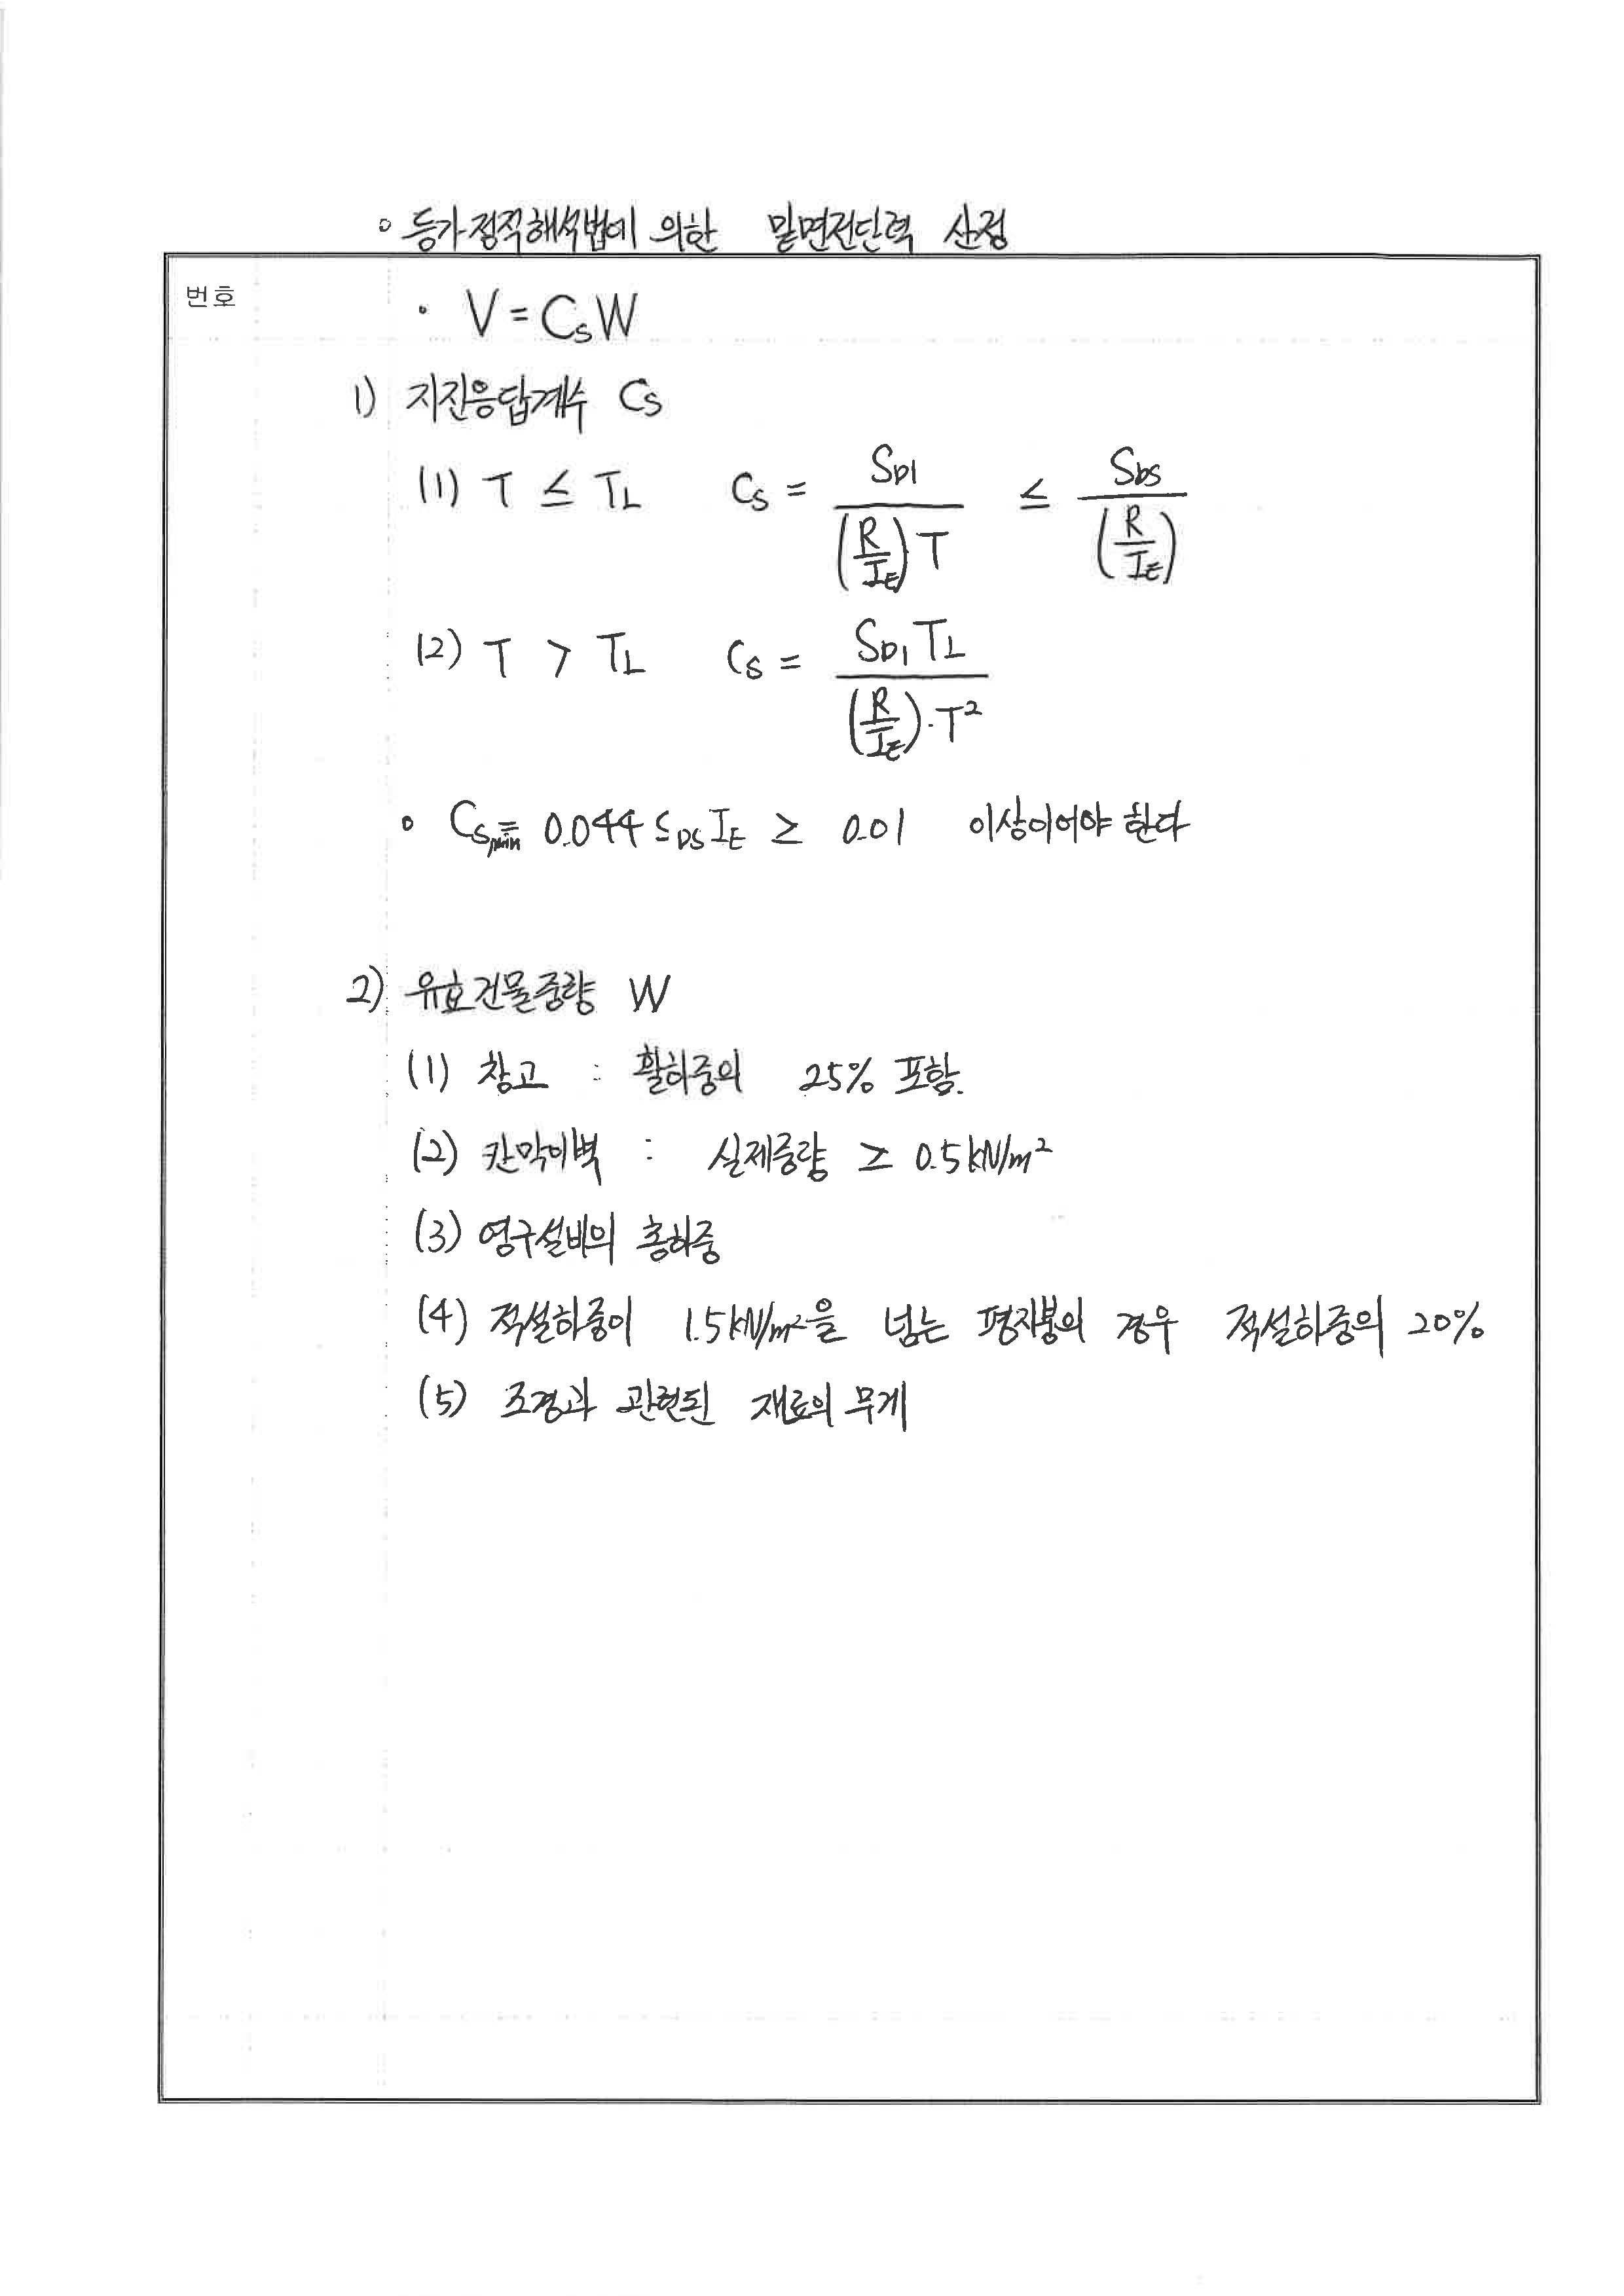 ◦ 등가정적해석법에 의한 밑면전단력 산정
번호
· V = CsW
1) 지진응답계수 Cs
(1) T ≤ TL Cs = SD1 / (R/IE)T ≤ SDS / (R/IE)
(2) T > TL Cs = SD1 TL / (R/IE)·T²
◦ Cs,min = 0.044 SDS IE ≥ 0.01 이상이어야 한다
2) 유효건물중량 W
(1) 창고 : 활하중의 25% 포함.
(2) 칸막이벽 : 실제중량 ≥ 0.5kN/m²
(3) 영구설비의 총하중
(4) 적설하중이 1.5kN/m²을 넘는 평지붕의 경우 적설하중의 20%
(5) 조경과 관련된 재료의 무게